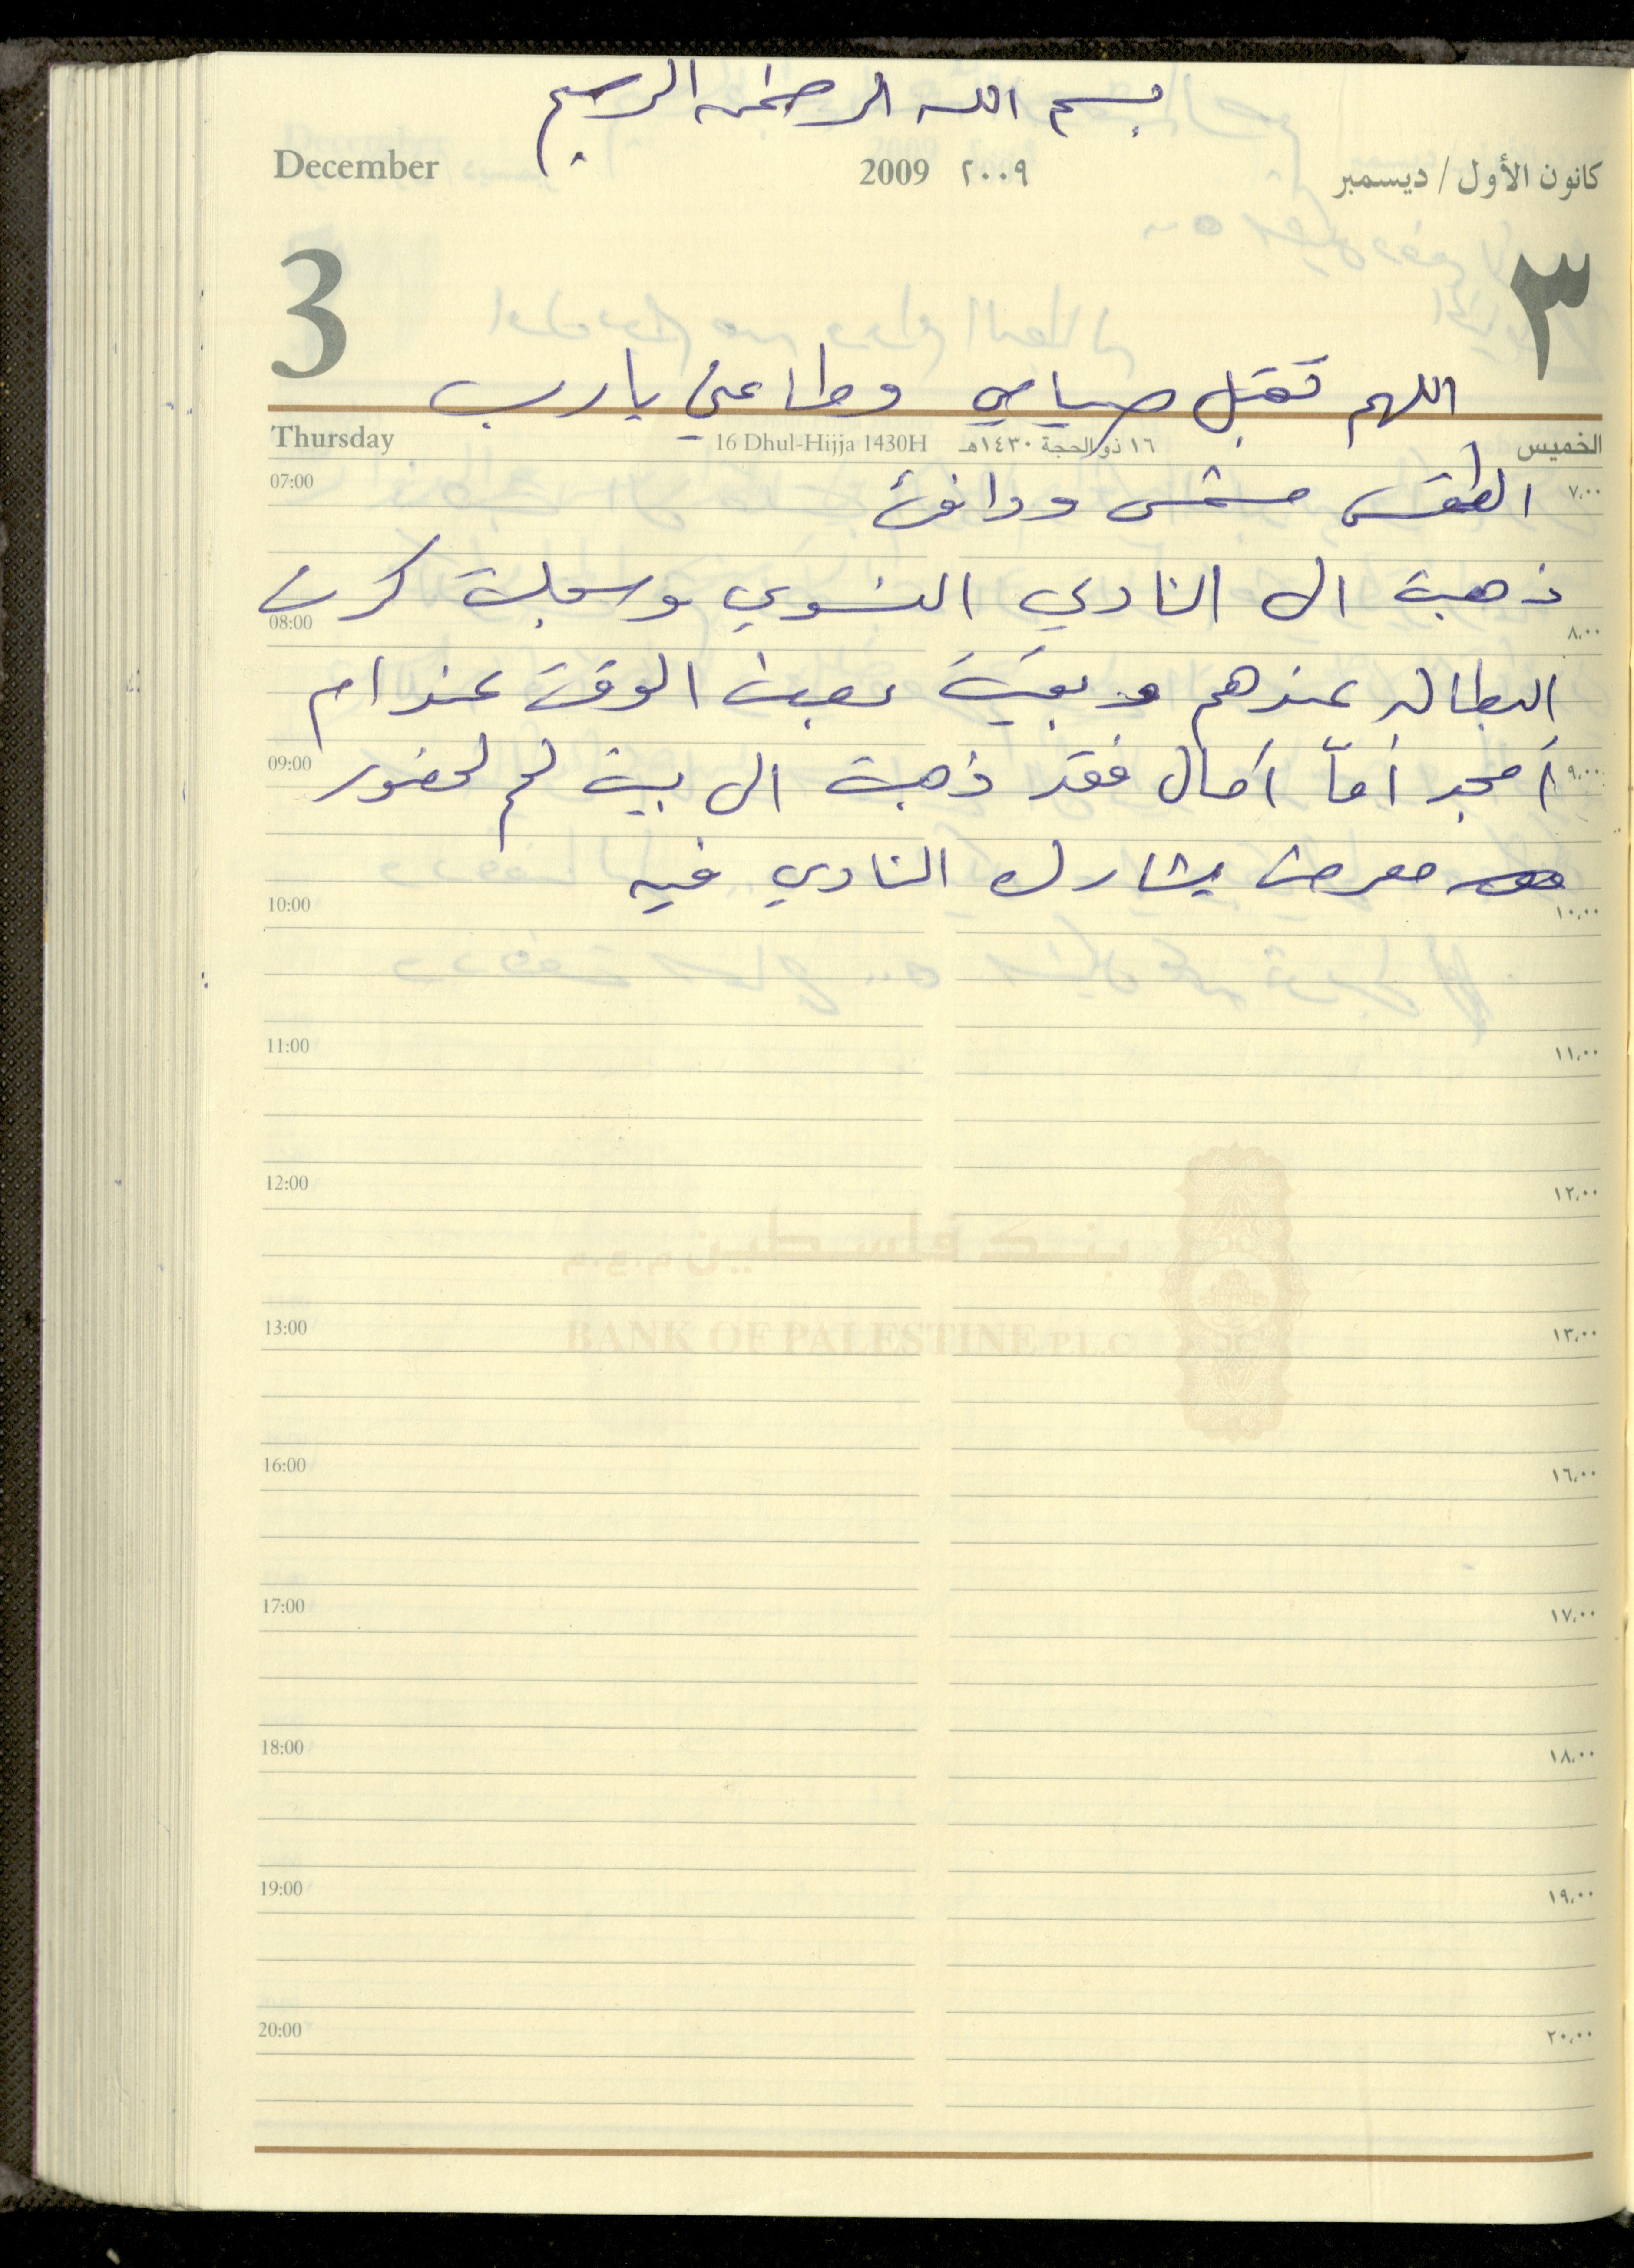 بسم الله الرحمن الرحيم
December 2009 ٢٠٠٩ كانون الأول / ديسمبر
3 ٣
اللهم تقبل صيامي وطاعتي يارب
Thursday 16 Dhul-Hijja 1430H ١٦ ذو الحجة ١٤٣٠هـ الخميس
07:00 ٧،٠٠
الطقس مشمس ودافئ
ذهبت الى النادي النسوي وسجلت كرت
08:00 ٨،٠٠
البطاله عندهم و بقيت بعض الوقت عند ام
أمجد أمّا آمال فقد ذهبت الى بيت لحم لحضور
09:00 ٩،٠٠
معرض يشارك النادي فيه
10:00 ١٠،٠٠
11:00 ١١،٠٠
12:00 ١٢،٠٠
بنك فلسطين م.ع.م
BANK OF PALESTINE P.L.C
13:00 ١٣،٠٠
16:00 ١٦،٠٠
17:00 ١٧،٠٠
18:00 ١٨،٠٠
19:00 ١٩،٠٠
20:00 ٢٠،٠٠